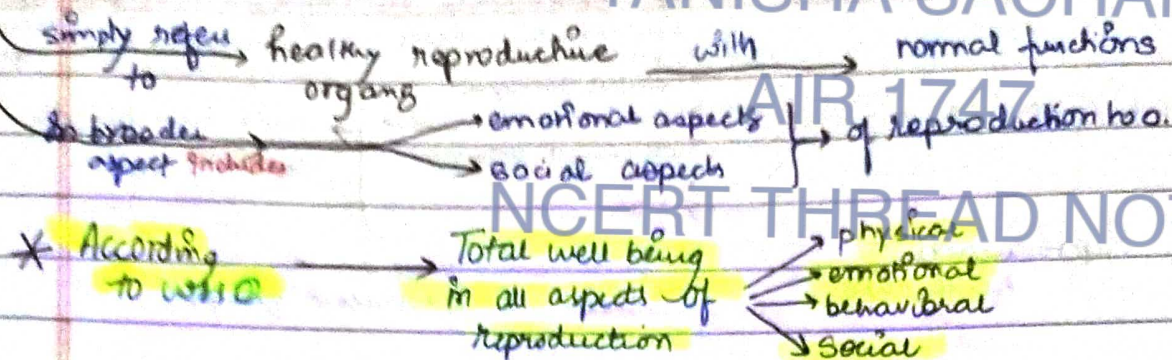 simply refers to → healthy reproductive organs with → normal functions
In broader aspect includes → emotional aspects
→ social aspects } → of reproduction too.
AIR 1747
NCERT THREAD NO
* According to WHO → Total well being in all aspects of reproduction
→ physical
→ emotional
→ behavioral
→ social